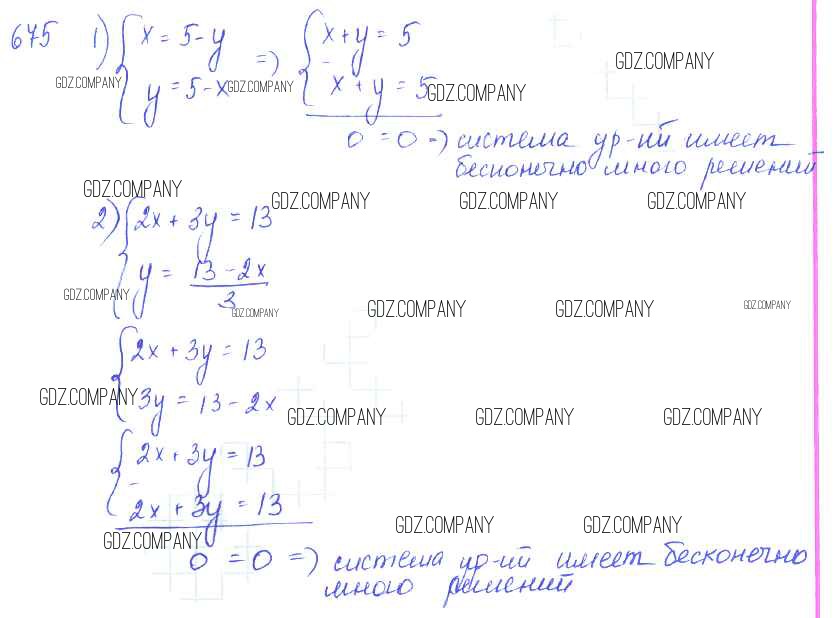 675 1) { x = 5 - y => { x + y = 5
GDZ.COMPANY
{ y = 5 - x GDZ.COMPANY - x + y = 5 GDZ.COMPANY
GDZ.COMPANY
0 = 0 => система ур-ий имеет
бесконечно много решений
GDZ.COMPANY GDZ.COMPANY GDZ.COMPANY GDZ.COMPANY
2) { 2x + 3y = 13
y = (13 - 2x)/3
GDZ.COMPANY GDZ.COMPANY GDZ.COMPANY GDZ.COMPANY GDZ.COMPANY
{ 2x + 3y = 13
GDZ.COMPANY 3y = 13 - 2x
GDZ.COMPANY GDZ.COMPANY GDZ.COMPANY
{ 2x + 3y = 13
- 2x + 3y = 13
GDZ.COMPANY GDZ.COMPANY GDZ.COMPANY
0 = 0 => система ур-ий имеет бесконечно
много решений